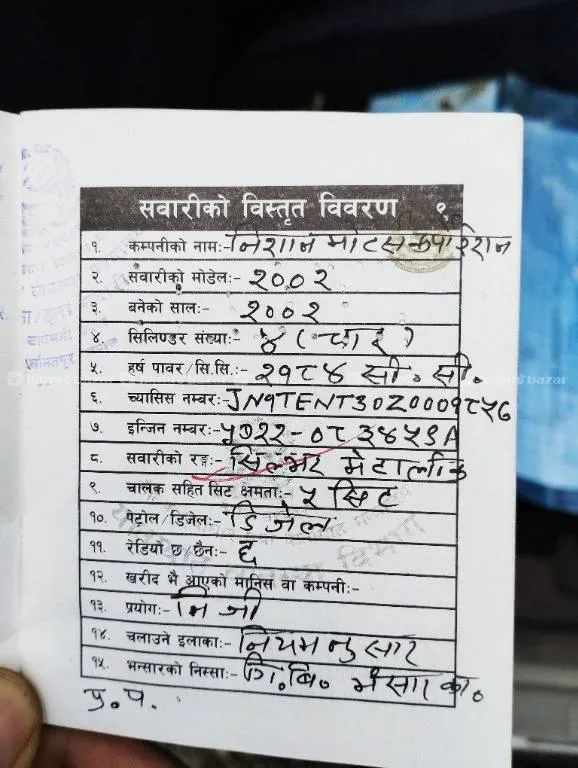 सवारीको विस्तृत विवरण ९
१. कम्पनीको नाम:- निशान मोटर्स कर्पोरेशन
२. सवारीको मोडेल:- २००२
३. बनेको साल:- २००२
४. सिलिण्डर संख्या:- ४ (चार)
५. हर्ष पावर/सि.सि.:- २१८४ सी. सी.
६. च्यासिस नम्बर:- JN1TENT30Z000१८५७
७. इन्जिन नम्बर:- YD22-०८३४५९A
८. सवारीको रङ्ग:- सिल्भर मेटालिक
९. चालक सहित सिट क्षमता:- ५ सिट
१०. पेट्रोल/डिजेल:- डिजेल
११. रेडियो छ/छैन:- छ
१२. खरीद भै आएको मानिस वा कम्पनी:-
१३. प्रयोग:- निजी
१४. चलाउने इलाका:- नियमनुसार
१५. भन्सारको निस्सा:- भंसार का.
प्र.प.